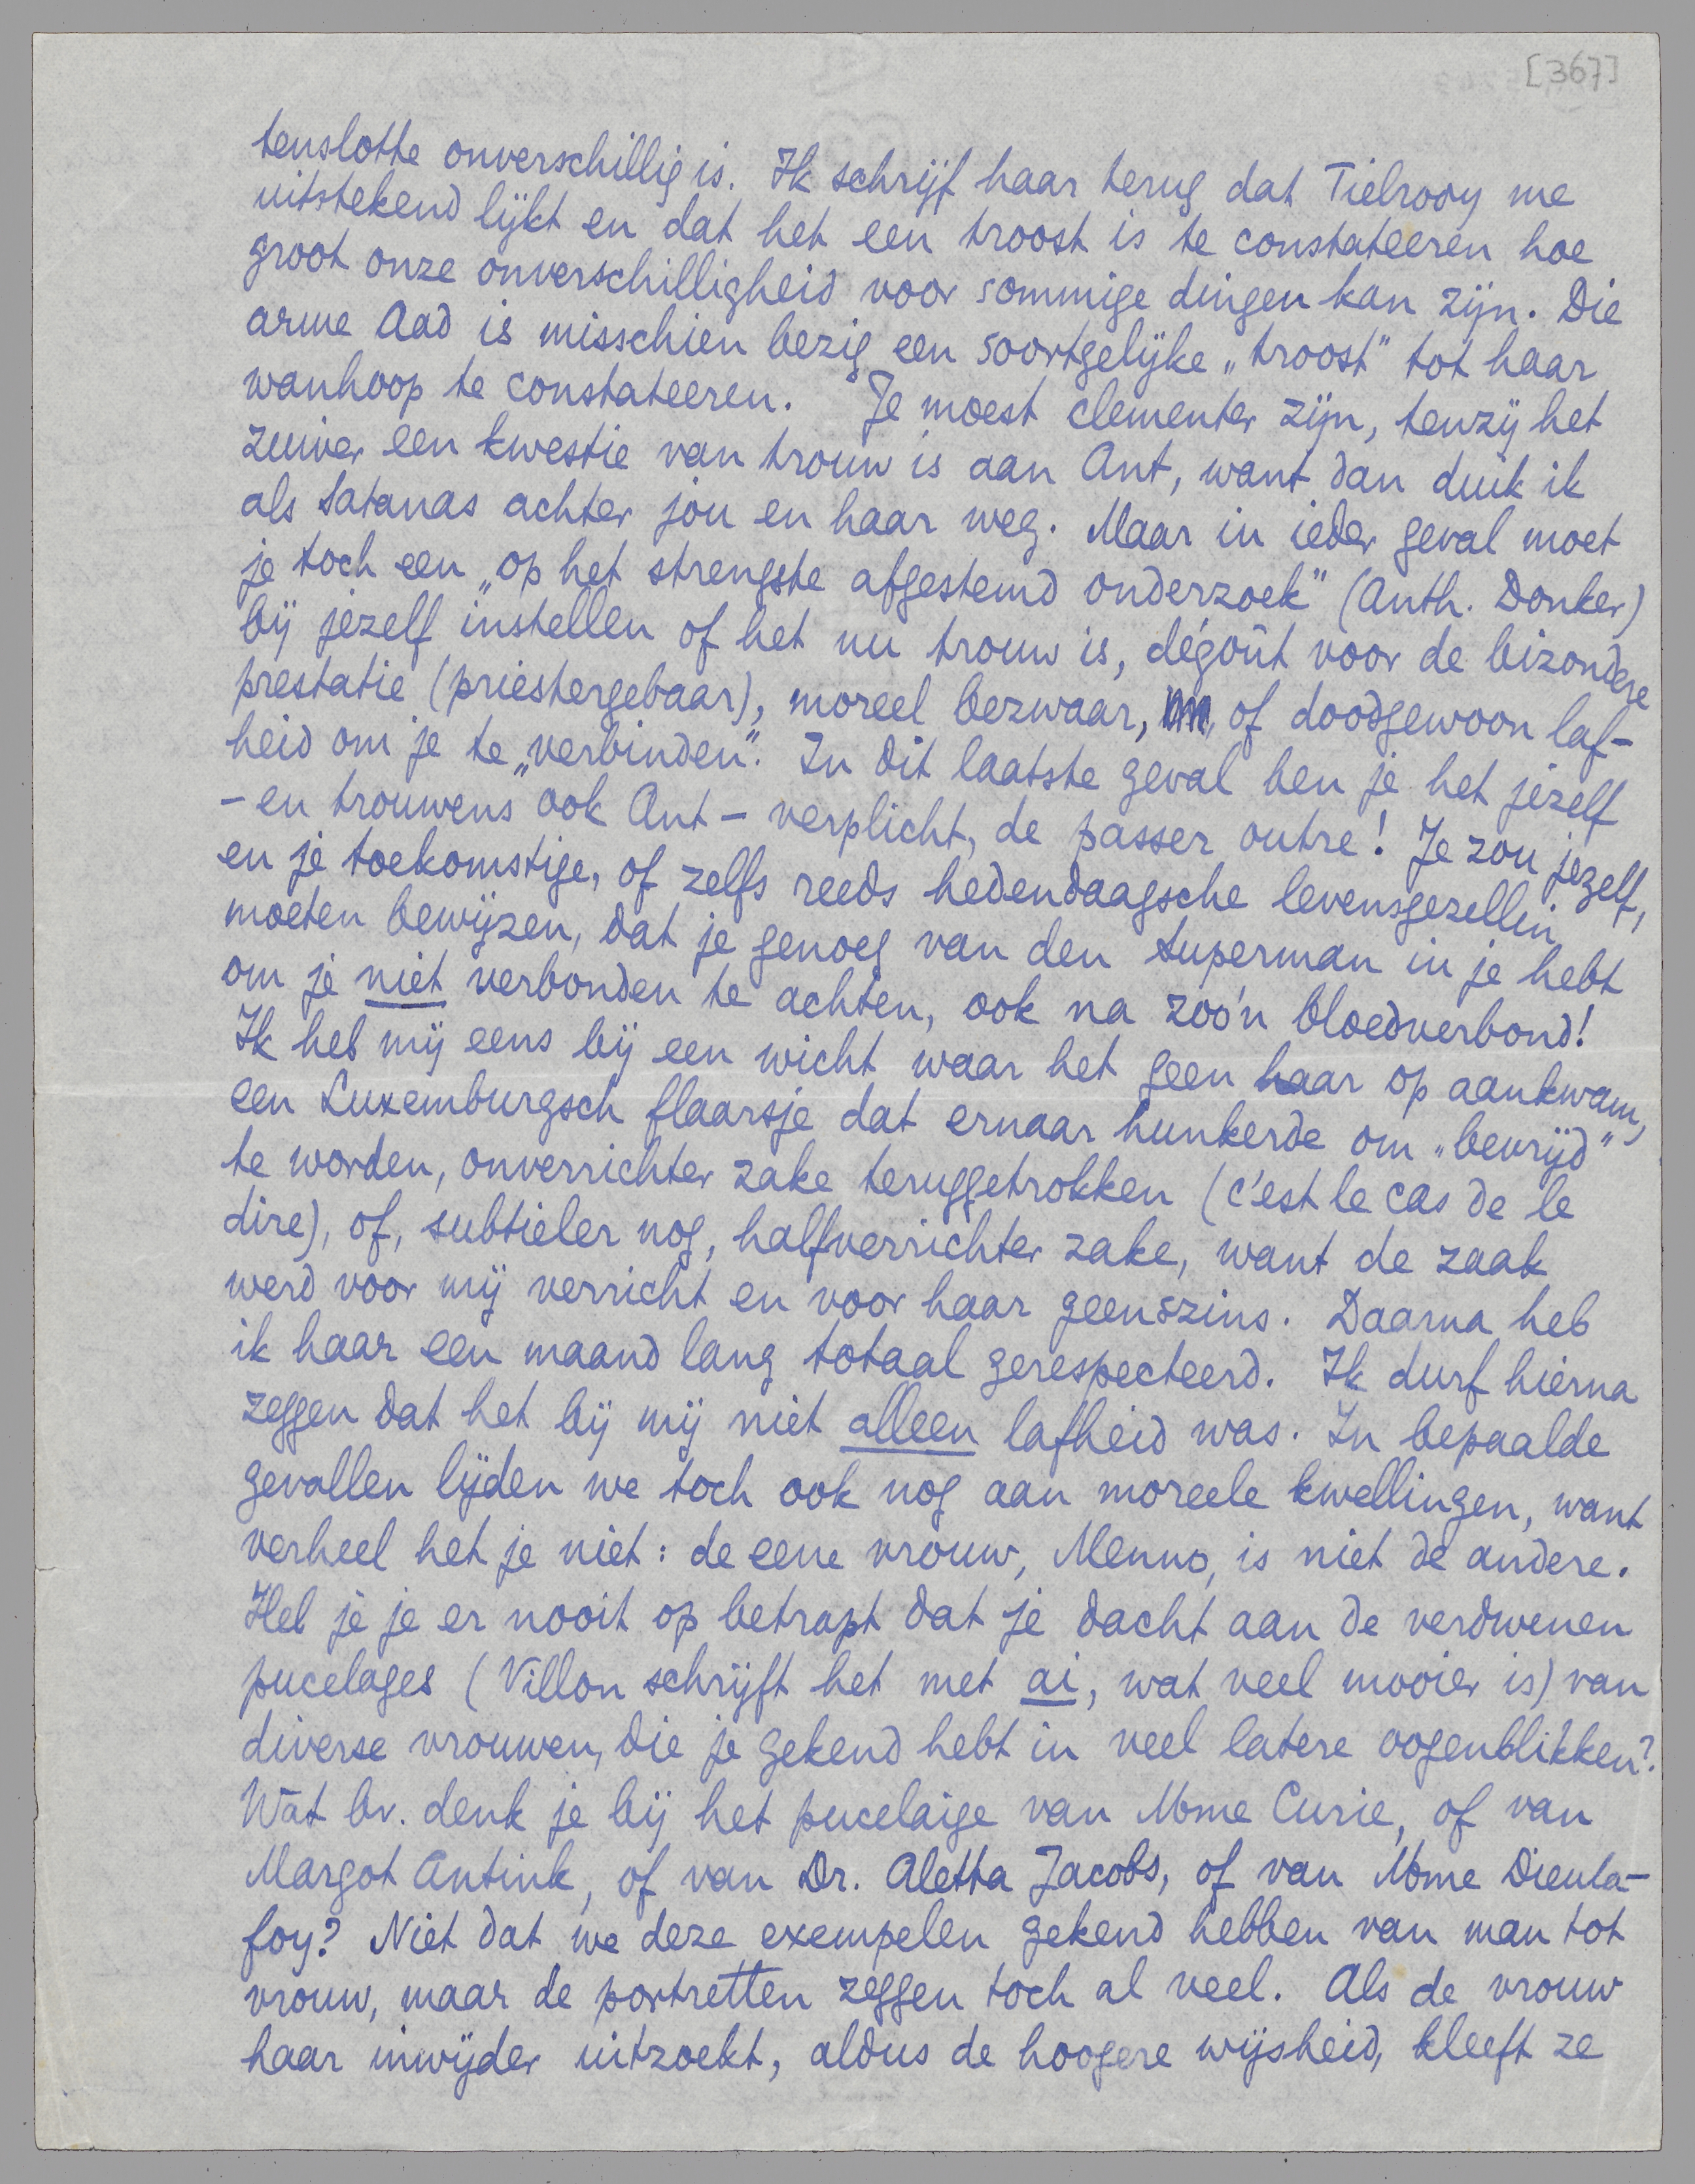 [367]
tenslotte onverschillig is. Ik schrijf haar terug dat Tielrooy me
uitstekend lijkt en dat het een troost is te constateeren hoe
groot onze onverschilligheid voor sommige dingen kan zijn. Die
arme Aad is misschien bezig een soortgelijke „troost" tot haar
wanhoop te constateeren. Je moest clementer zijn, tenzij het
zuiver een kwestie van trouw is aan Ant, want dan duik ik
als Satanas achter jou en haar weg. Maar in ieder geval moet
je toch een „op het strengste afgestemd onderzoek" (Anth. Donker)
bij jezelf instellen of het nu trouw is, dégoût voor de bizondere
prestatie (priestergebaar), moreel bezwaar, of doodgewoon laf-
heid om je te „verbinden". In dit laatste geval ben je het jezelf
- en trouwens ook Ant - verplicht, de passer outre! Je zou jezelf,
en je toekomstige, of zelfs reeds hedendaagsche levensgezellin
moeten bewijzen, dat je genoeg van den Superman in je hebt
om je niet verbonden te achten, ook na zoo'n bloedverbond!
Ik heb mij eens bij een wicht waar het geen haar op aankwam,
een Luxemburgsch flaarsje dat ernaar hunkerde om „bevrijd"
te worden, onverrichter zake teruggetrokken (c'est le cas de le
dire), of, subtieler nog, halfverrichter zake, want de zaak
werd voor mij verricht en voor haar geenszins. Daarna heb
ik haar een maand lang totaal gerespecteerd. Ik durf hierna
zeggen dat het bij mij niet alleen lafheid was. In bepaalde
gevallen lijden we toch ook nog aan moreele kwellingen, want
verheel het je niet: de eene vrouw, Menno, is niet de andere.
Heb je je er nooit op betrapt dat je dacht aan de verdwenen
pucelages (Villon schrijft het met ai, wat veel mooier is) van
diverse vrouwen, die je gekend hebt in veel latere oogenblikken?
Wat bv. denk je bij het pucelaige van Mme Curie, of van
Margot Antink, of van Dr. Aletta Jacobs, of van Mme Dieula-
foy? Niet dat we deze exempelen gekend hebben van man tot
vrouw, maar de portretten zeggen toch al veel. Als de vrouw
haar inwijder uitzoekt, aldus de hoogere wijsheid, kleeft ze